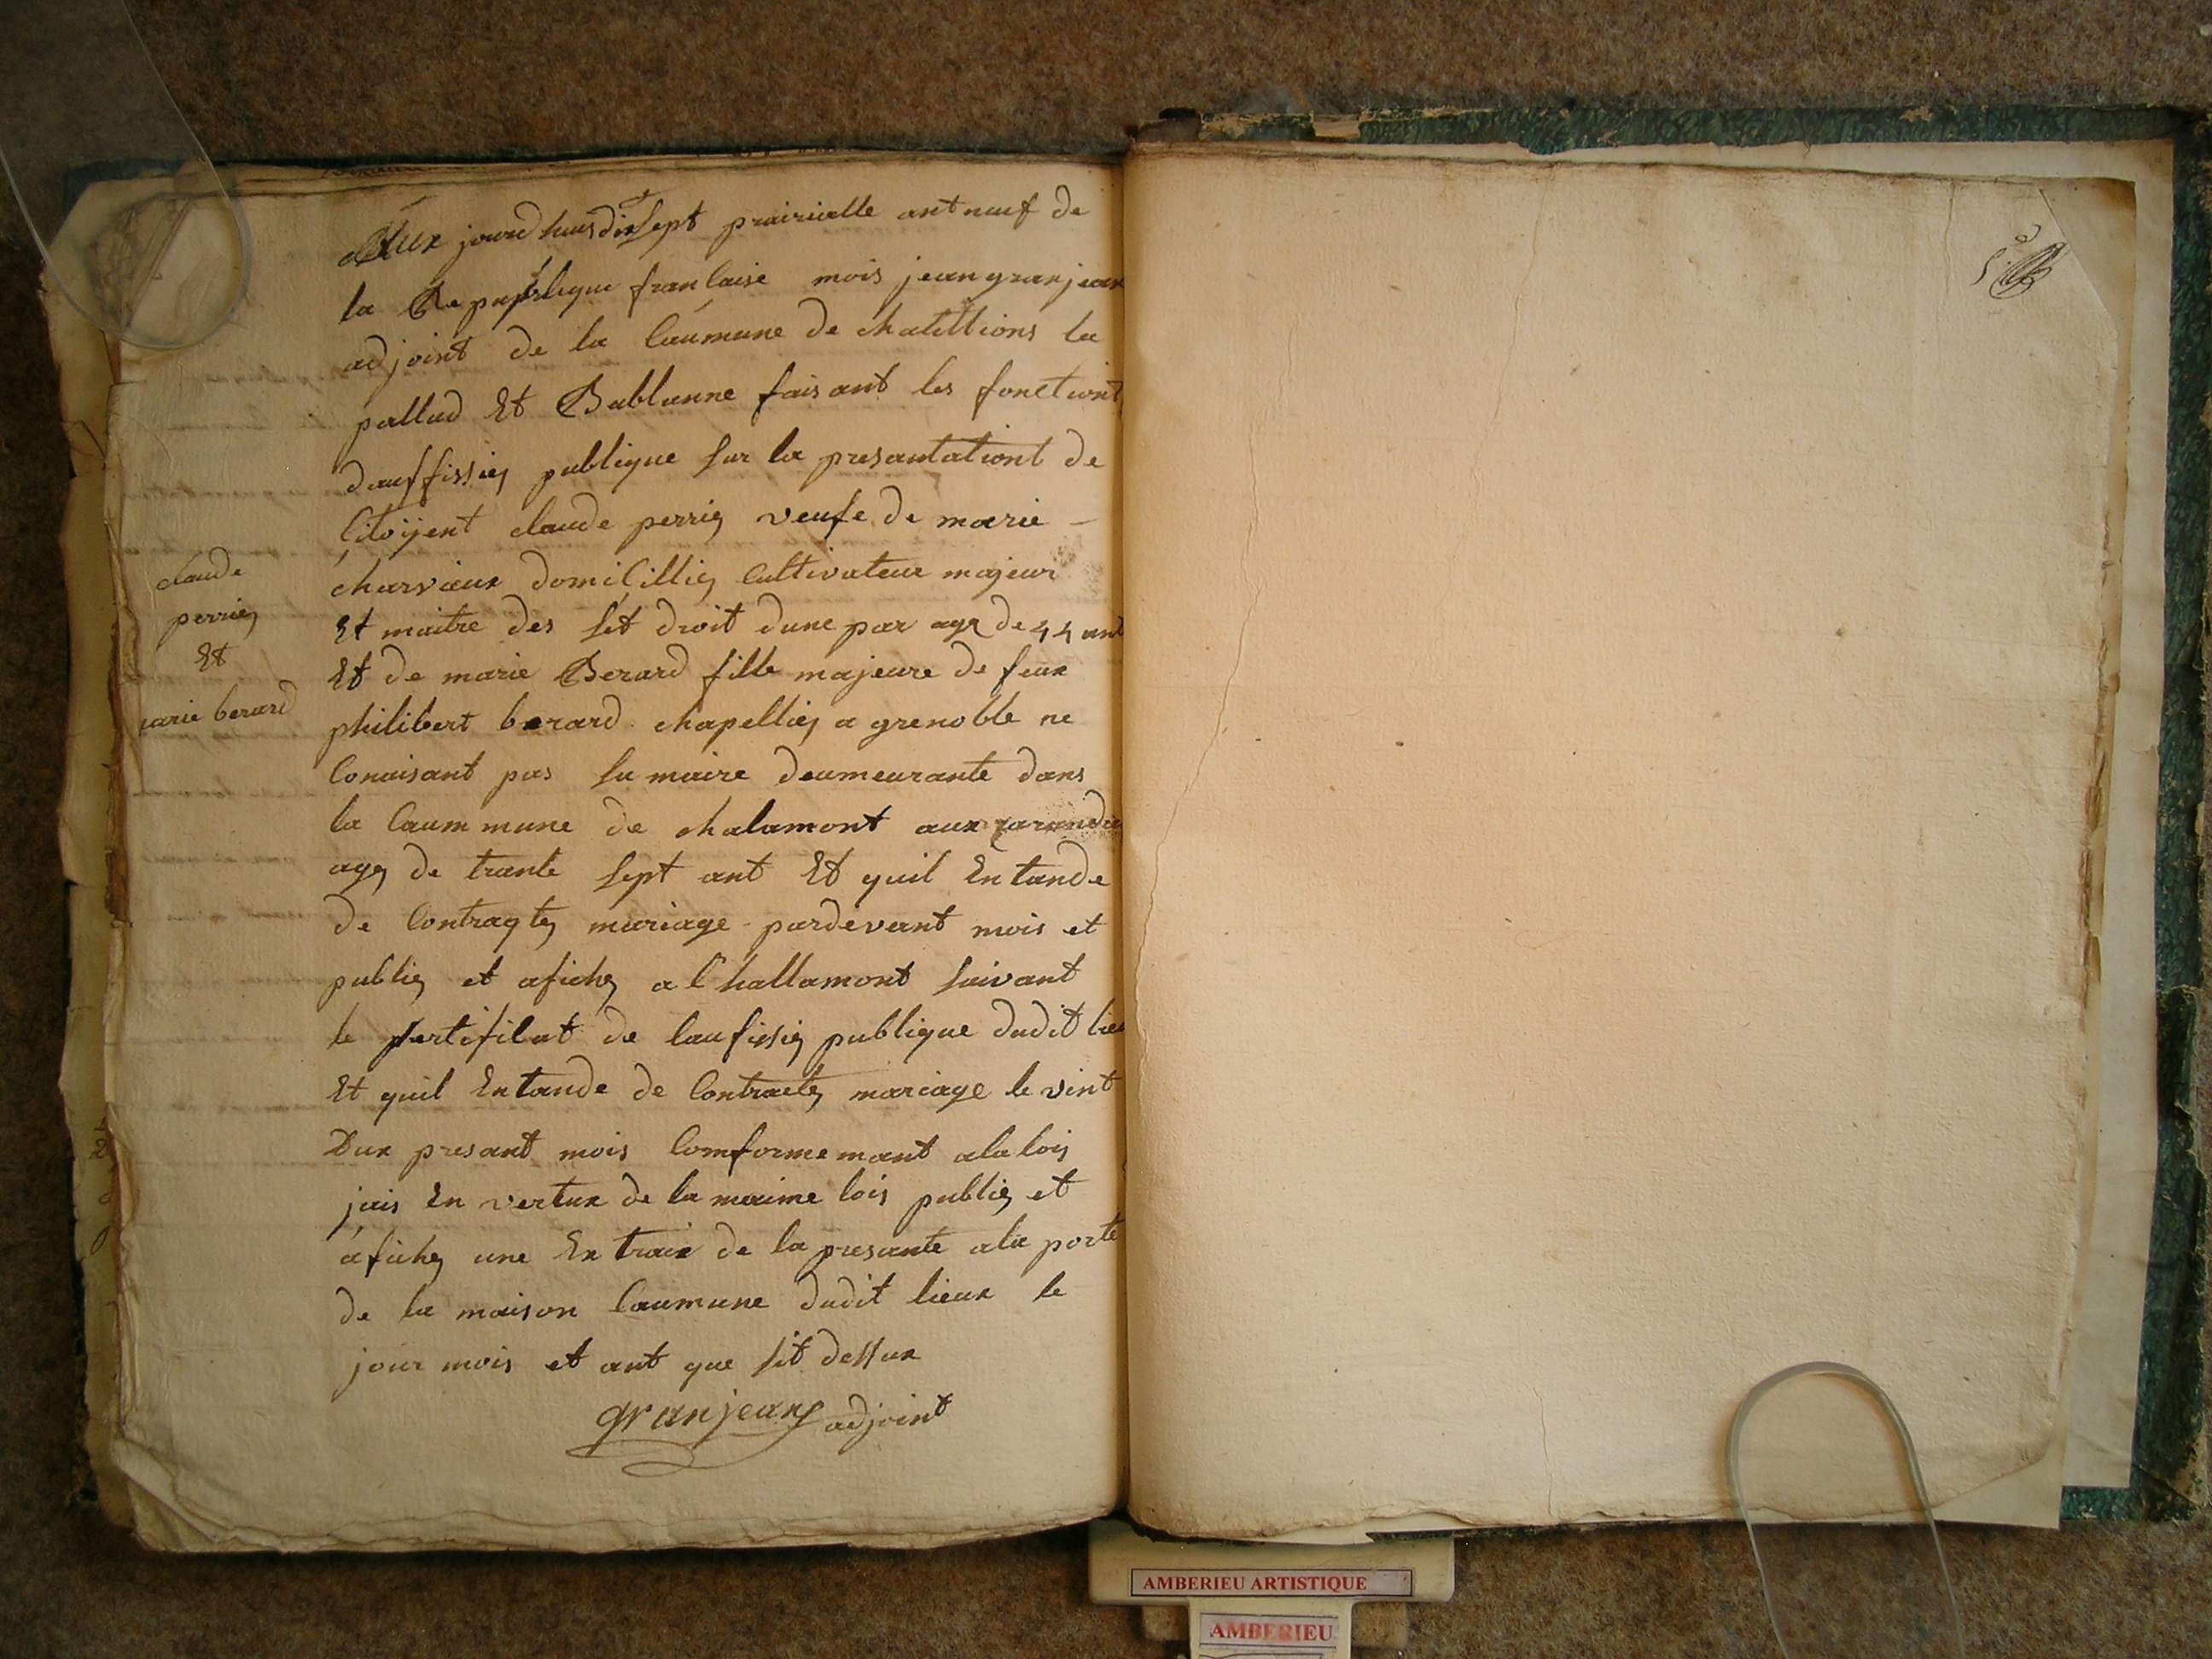 Aux jourdhuis dix sept prairialle ant neuf de
la Republique francaise mois jean granjean
adjoint de la Caumune de chatillions la
pallud Et Bublanne faisant les fonctiont
dauffissieŋ publique sur la presantationt de
Citoijent claude perrieŋ veufe de marie
charvieux domicillieŋ Cultivateur majeur
Et maitre des set droit dune par age de 44 ant
Et de marie Berard fille majeure de feux
philibert berard chapellieŋ a grenoble ne
Conaisant pas sa maire deumeurante dans
la Caummune de chalamont aux
ageŋ de trante sept ant Et quil Entande
de Contragteŋ mariage pardevant mois et
publieŋ et aficheŋ a Challamont suivant
le sertificat de laufissieŋ publique dudit lieu
Et quil Entande de Contracteŋ mariage le vint
Dux presant mois Comformemant a la lois
jais En vertux de la maime lois publieŋ et
aficheŋ une Extraix de la presante a la porte
de la maison Caumune dudit lieux le
jour mois et ant que sit dessux
granjean adjoint
claude
perrieŋ
Et
marie berard
AMBERIEU ARTISTIQUE
AMBERIEU